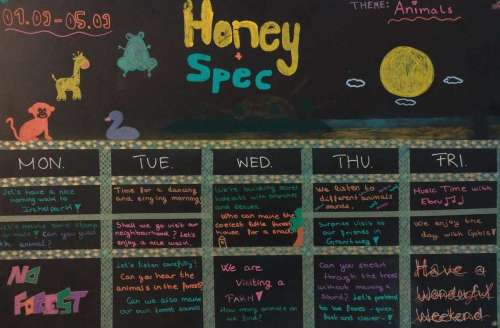 01.09-05.09
THEME:
Animals
Honey
+
Spec
MON.
TUE.
WED.
THU.
FRI.
Let's have a nice
morning walk to
Time for a dancing
and singing morning
We're building secret
hideouts with branches
and leaves.
We listen to
different animals
sounds.
Music Time with
Ebru
Let's
a stamp
Can you guess
the animal?
Shall we go visit our
neighbourhood? Let's
enjoy a nice walk.
Who can make the
coolest little forest
house for a snail?
Surprise visit to
our friends in
We enjoy the
day with
No
FOREST
Let's listen carefully!
Can you hear the
animals in the forest?
Can we also make
our own forest sounds
We are
Visiting a
FARM
How many animals can
we find?
Can you sneak
through the trees
without making a
sound? Let's pretend
to be foxes - quick,
quiet and clever
Have a
Wonderful
Weekend